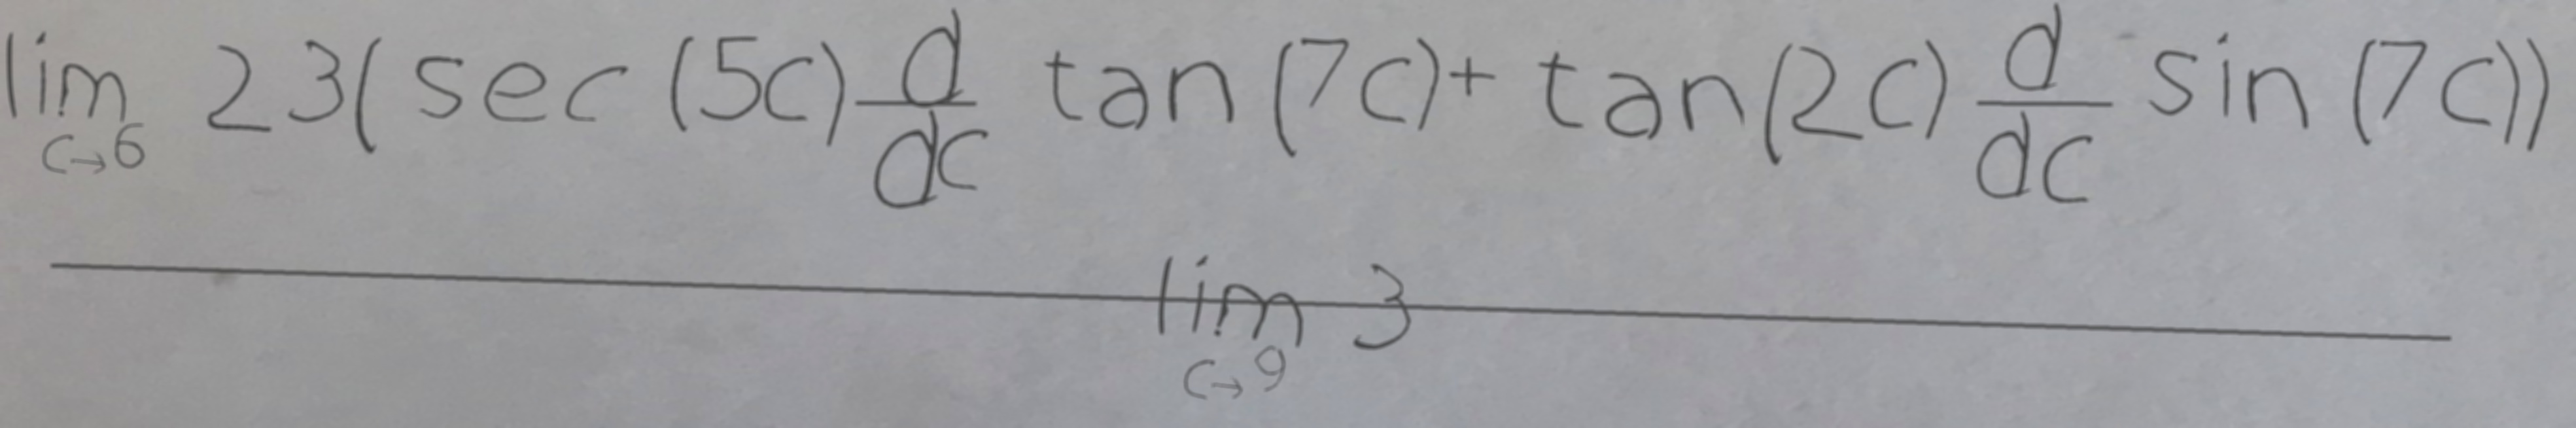 lim 23(sec(5c) d/dc tan(7c)+tan(2c) d/dc sin(7c))
c→6
lim 3
c→9